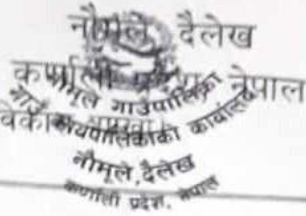 नौमूले, दैलेख
कर्णाली प्रदेश, नेपाल
नौमूले गाउँपालिका
गाउँ कार्यपालिकाको कार्यालय
नौमूले, दैलेख
कर्णाली प्रदेश, नेपाल